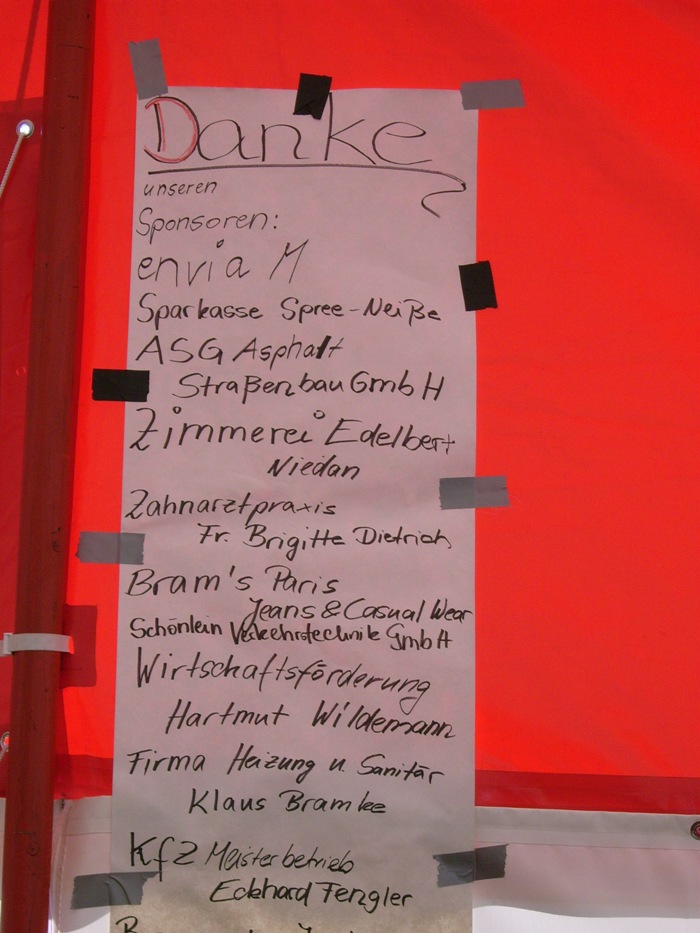 Danke
unseren
Sponsoren:
envia M
Sparkasse Spree-Neiße
ASG Asphalt
Straßenbau GmbH
Zimmerei Edelbert
Niedan
Zahnarztpraxis
Fr. Brigitte Dietrich
Bram's Paris
Jeans & Casual Wear
Schönlein Verkehrstechnik GmbH
Wirtschaftsförderung
Hartmut Wildemann
Firma Heizung u. Sanitär
Klaus Bramke
Kfz Meisterbetrieb
Eckhard Fengler